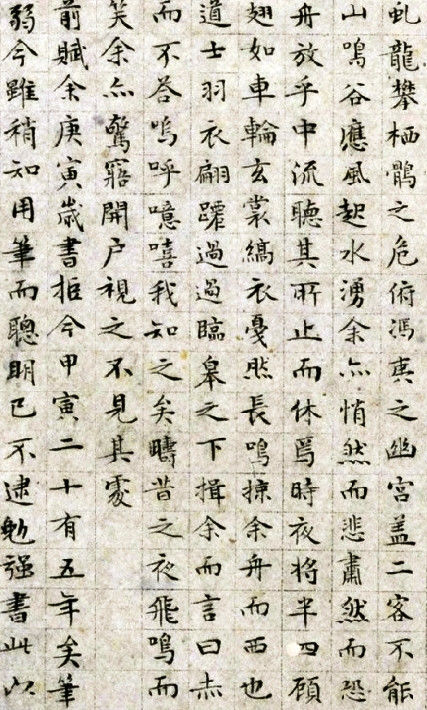 虬龍攀栖鶻之危俯馮夷之幽宮盖二客不能
山鳴谷應風起水湧余亦悄然而悲肅然而恐
舟放乎中流聽其所止而休焉時夜將半四顧
翅如車輪玄裳縞衣戛然長鳴掠余舟而西也
道士羽衣翩躚過過臨皋之下揖余而言曰赤
而不答嗚呼噫嘻我知之矣疇昔之夜飛鳴而
笑余亦驚寤開户視之不見其處
前賦余庚寅歲書距今甲寅二十有五年矣筆
弱今雖稍知用筆而聰明已不逮勉强書此以